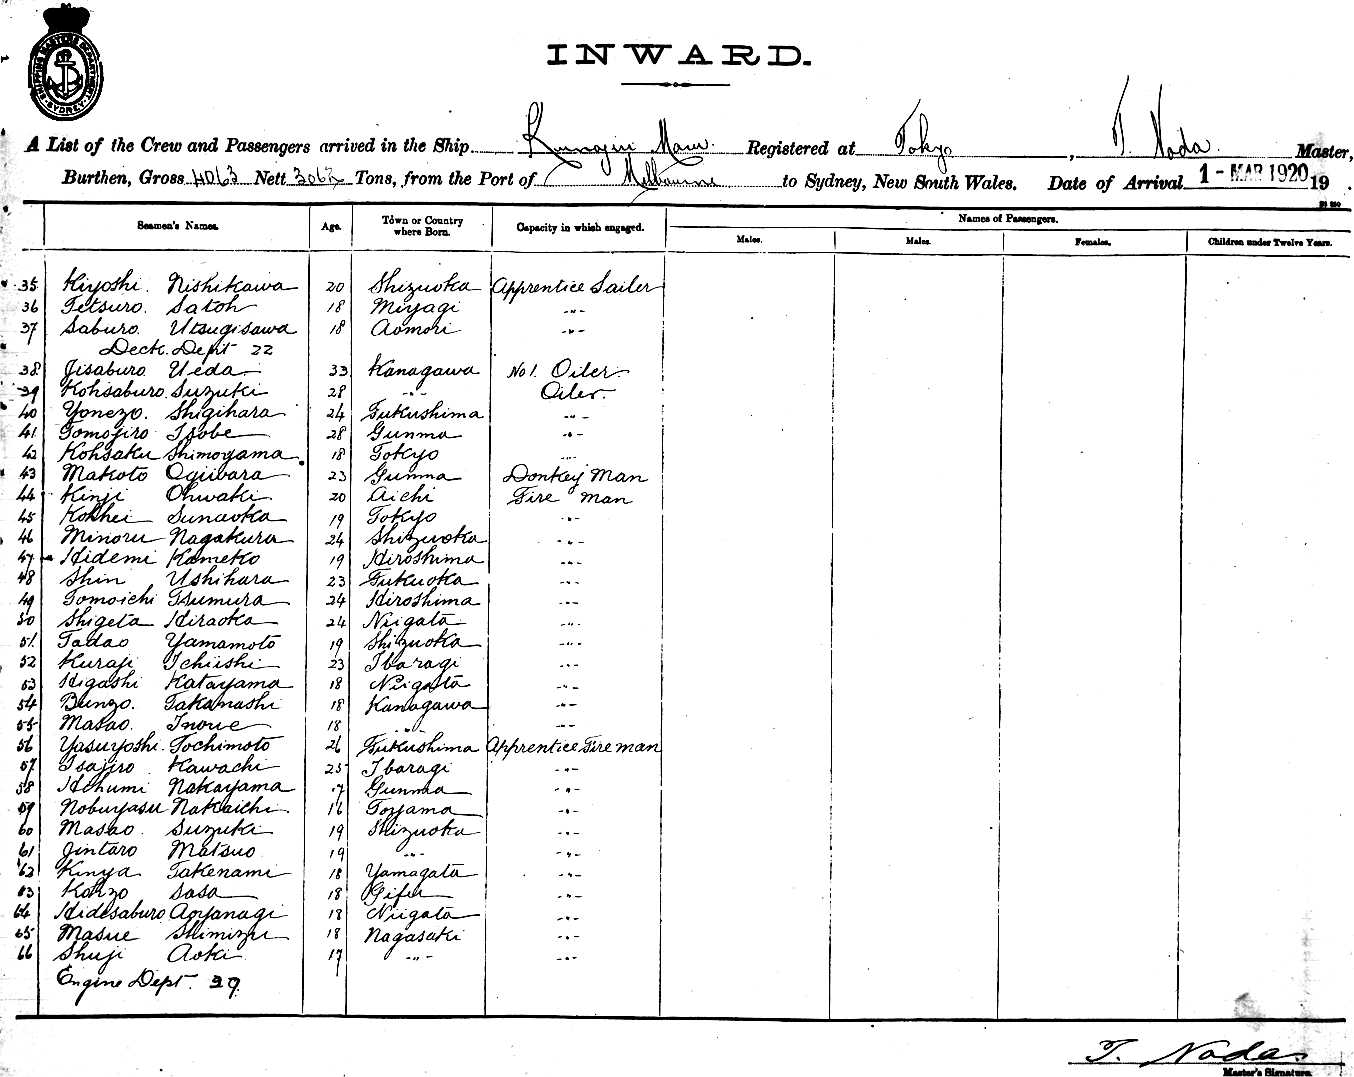 SHIPPING MASTERS DEPARTMENT SYDNEY
INWARD.
A List of the Crew and Passengers arrived in the Ship Maru. Registered at Tokyo, T. Noda Master,
Burthen, Gross 4063 Nett 3062 Tons, from the Port of Melbourne to Sydney, New South Wales. Date of Arrival 1-MAR 1920 19 .
Seamen's Names. Age. Town or Country where Born. Capacity in which engaged. Names of Passengers.
Males. Males. Females. Children under Twelve Years.
35 Kiyoshi. Nishikawa 20 Shizuoka Apprentice Sailer
36 Tetsuro. Satoh 18 Miyagi -"-
37 Saburo. Utsugisawa 18 Aomori -"-
Deck. Dept 22
38 Jisaburo Ueda 33 Kanagawa No 1. Oiler
39 Kohsaburo. Suzuki 28 -"- Oiler.
40 Yonezo. Shigihara 24 Fukushima -"-
41 Tomojiro Isobe 28 Gunma -"-
42 Kohsaku Shimoyama 18 Tokyo -"-
43 Makoto Ogiwara 23 Gunma Donkey Man
44 Kinji Ohwaki 20 Aichi Fire man
45 Kohhei Sunaoka 19 Tokyo -"-
46 Minoru Nagakura 24 Shizuoka -"-
47 Hidemi Kameko 19 Hiroshima -"-
48 Shin Ushihara 23 Fukuoka -"-
49 Tomoichi Tsumura 24 Hiroshima -"-
50 Shigeta Hiraoka 24 Niigata -"-
51 Tadao Yamamoto 19 Shizuoka -"-
52 Kuraji Ichiishi 23 Ibaragi -"-
53 Higashi Katayama 18 Niigata -"-
54 Bunzo. Takanashi 18 Kanagawa -"-
55 Masao. Inoue 18 -"- -"-
56 Yasuyoshi. Tochimoto 26 Fukushima Apprentice Fire man
57 Isajiro Kawachi 25 Ibaragi -"-
58 Nakayama 17 Gunma -"-
59 Nobuyasu Nakaichi 16 Toyama -"-
60 Masao. Suzuki 19 Shizuoka -"-
61 Jintaro Matsuo 19 -"- -"-
62 Kinya Takenami 18 Yamagata -"-
63 Kohzo Sasa 18 Gifu -"-
64 Hidesaburo Aoyanagi 18 Niigata -"-
65 Masue Shimizu 18 Nagasaki -"-
66 Shuji Aoki 17 -"- -"-
Engine Dept. 29.
T. Noda
Master's Signature.